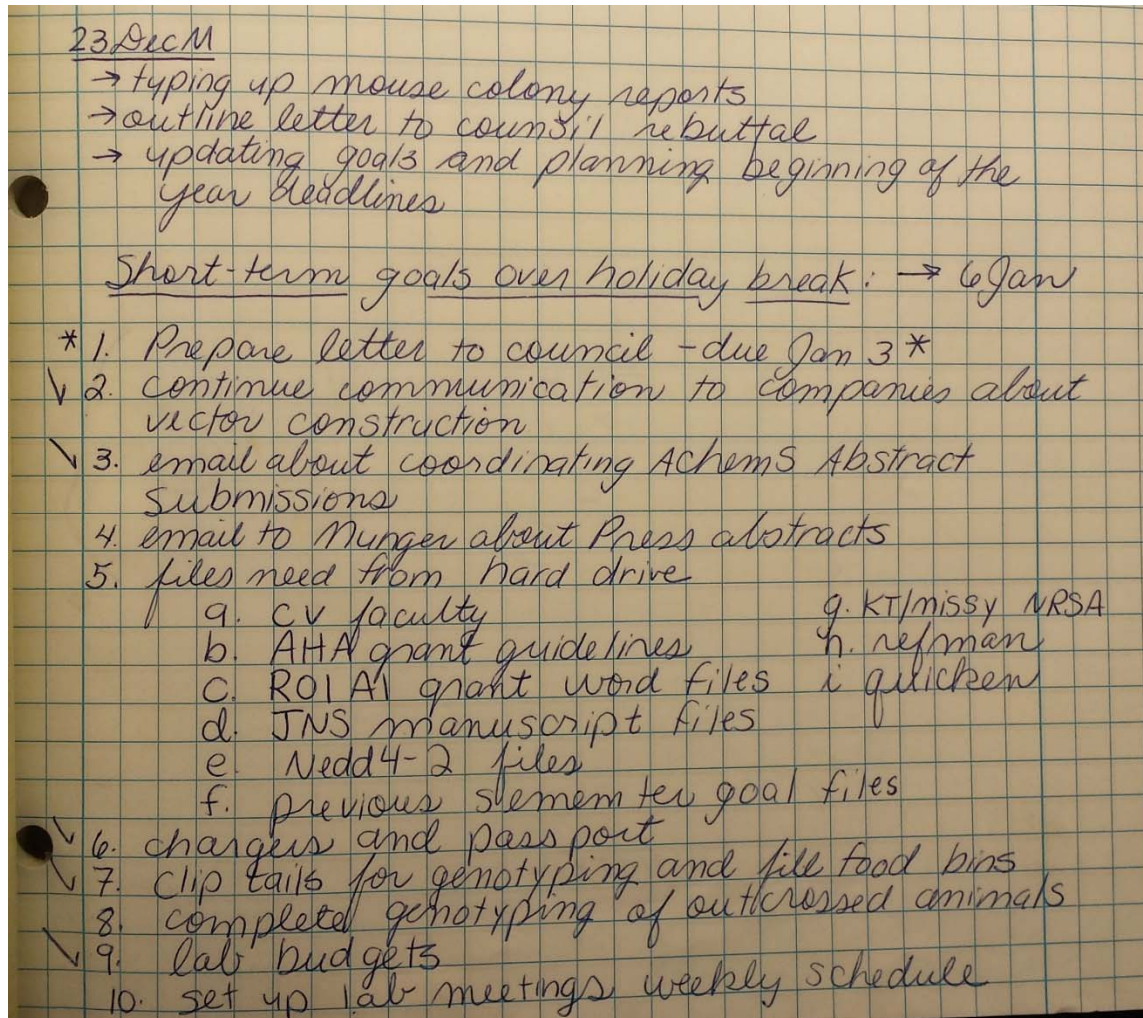 23 Dec M
→ typing up mouse colony reports
→ outline letter to council rebuttal
→ updating goals and planning beginning of the
year deadlines
Short-term goals over holiday break: → 6 Jan
* 1. Prepare letter to council - due Jan 3 *
✓ 2. continue communication to companies about
vector construction
✓ 3. email about coordinating AchemS Abstract
submissions
4. email to Munger about Press abstracts
5. files need from hard drive
a. CV faculty
b. AHA grant guidelines
c. RO1 A1 grant word files
d. JNS manuscript files
e. Nedd4-2 files
f. previous sememter goal files
g. KT/missy NRSA
h. refman
i quicken
✓ 6. chargers and passport
✓ 7. clip tails for genotyping and fill food bins
8. complete genotyping of outcrossed animals
✓ 9. lab budgets
10. set up lab meetings weekly schedule